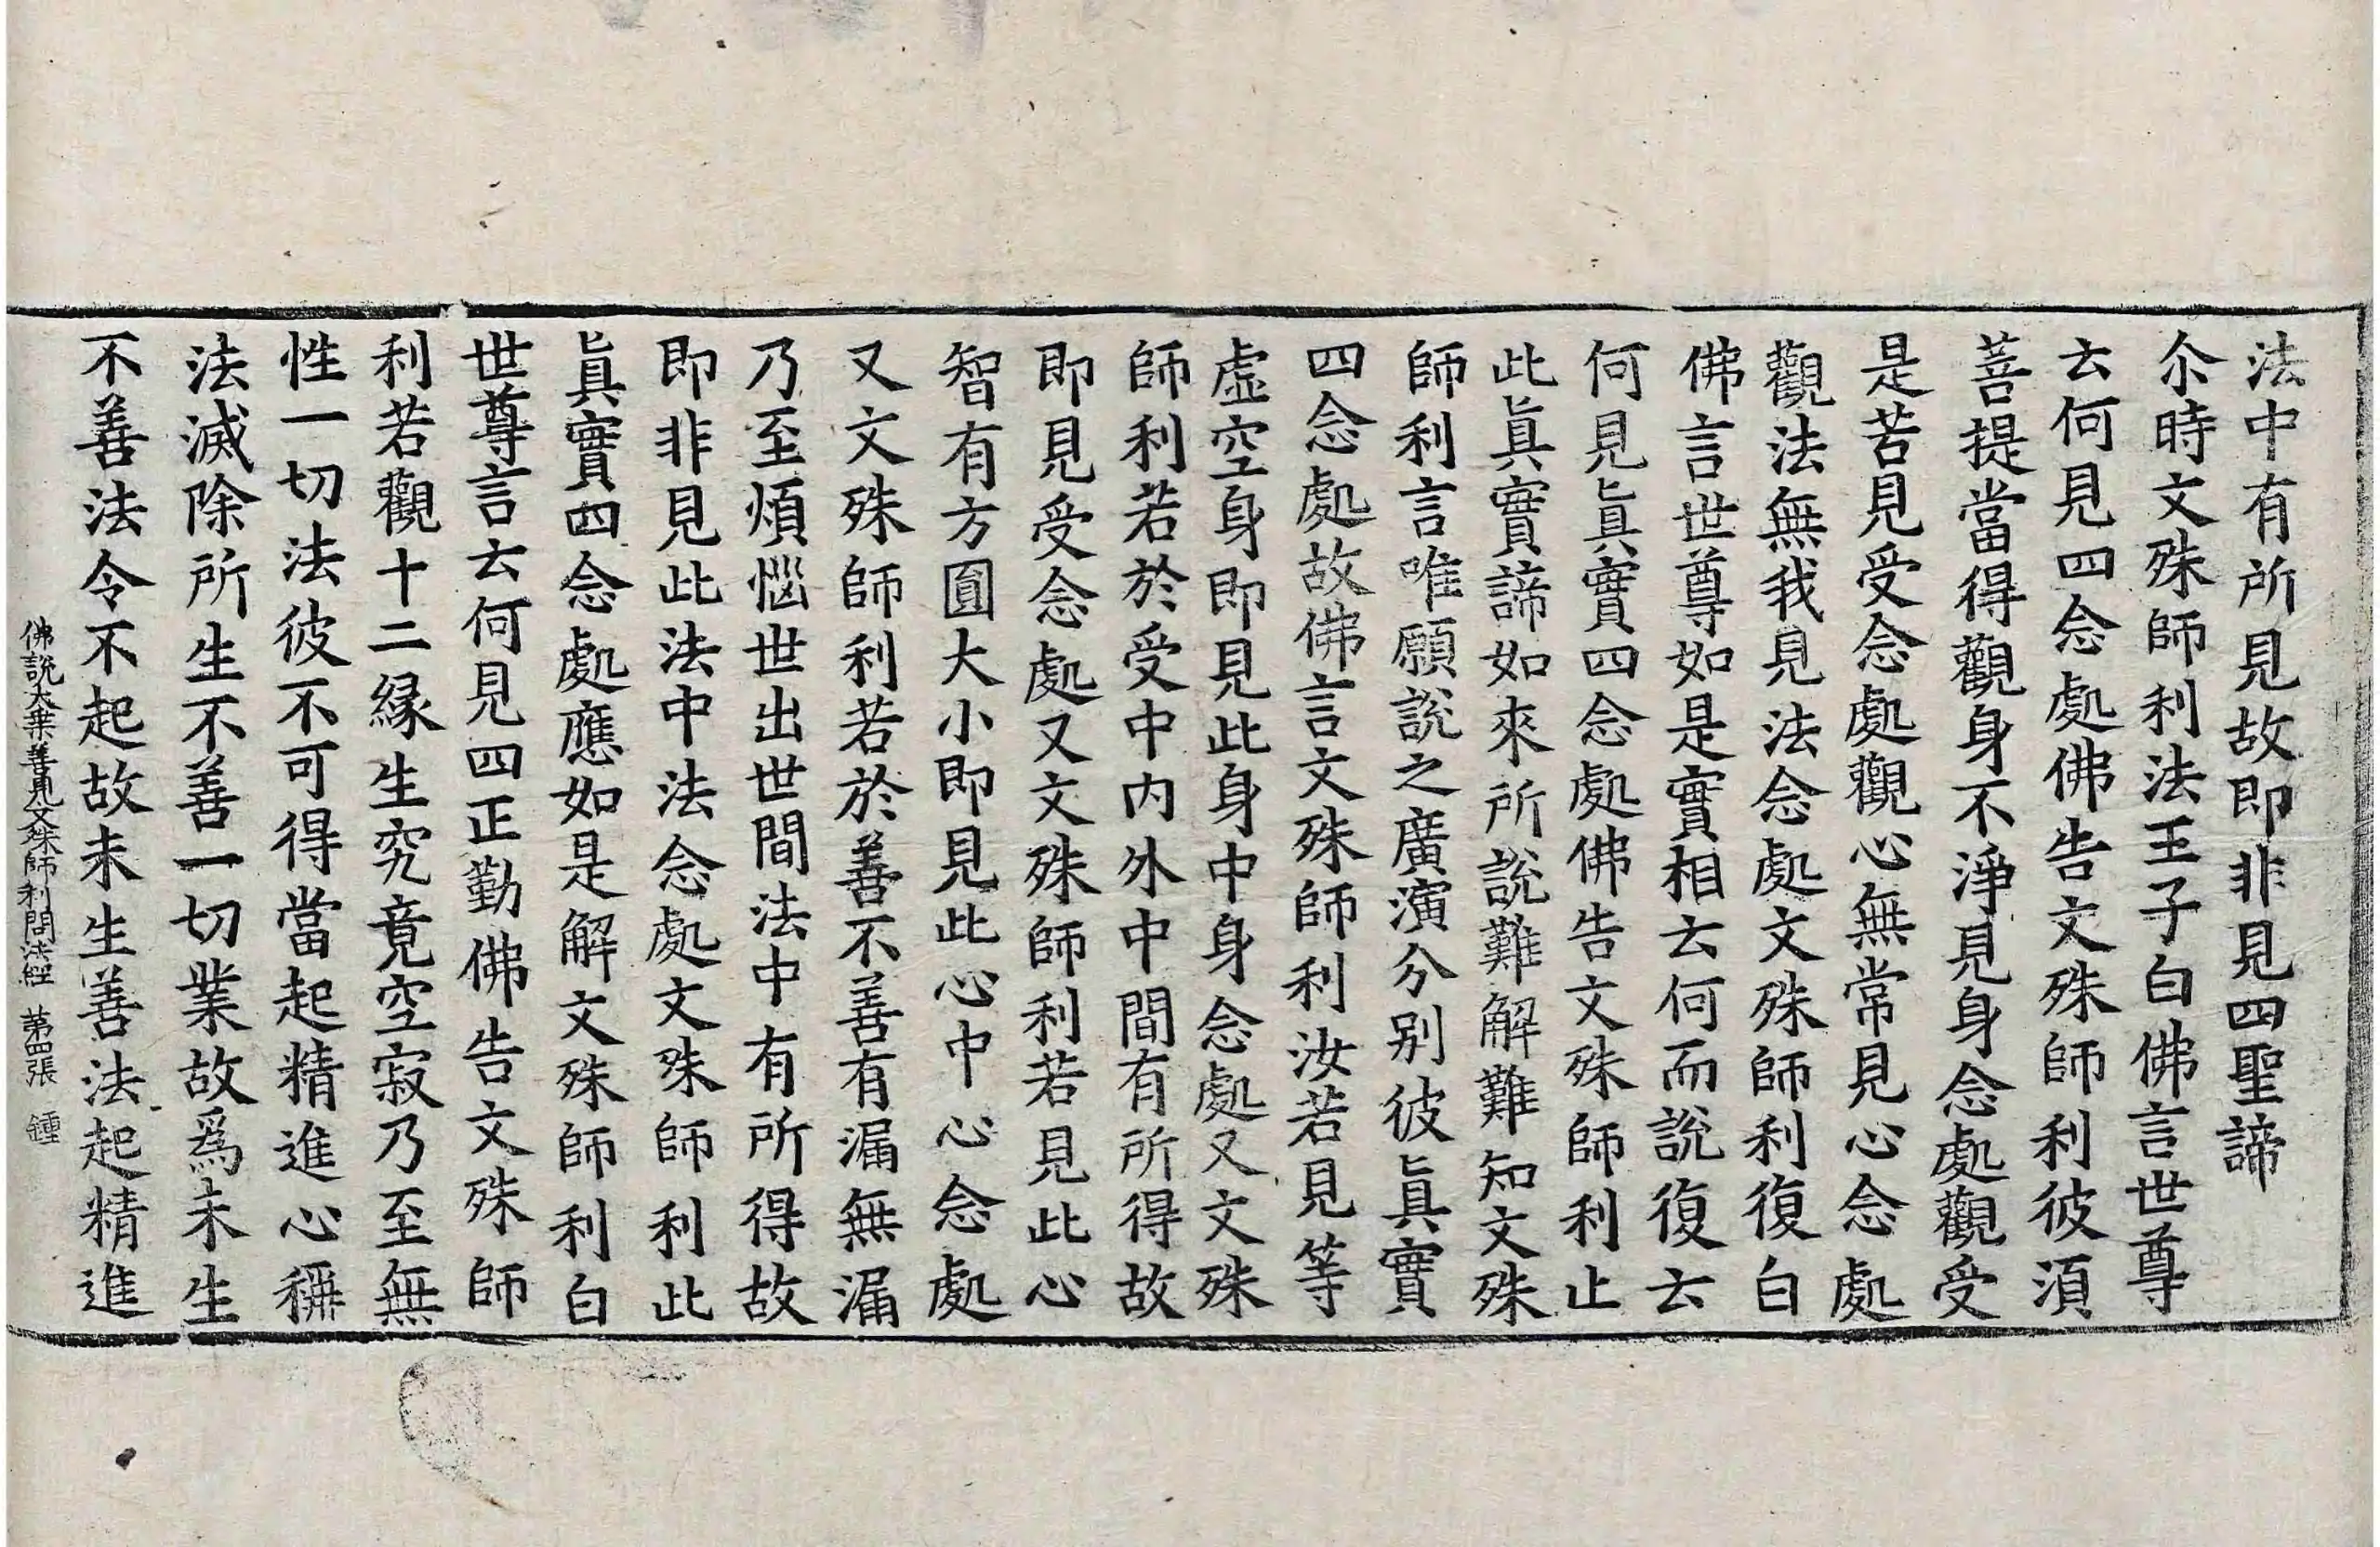 法中有所見故即非見四聖諦
尒時文殊師利法王子白佛言世尊
云何見四念處佛告文殊師利彼湏
菩提當得觀身不淨見身念處觀受
是苦見受念處觀心無常見心念處
觀法無我見法念處文殊師利復白
佛言世尊如是實相云何而說復云
何見眞實四念處佛告文殊師利止
此眞實諦如來所說難解難知文殊
師利言唯願說之廣演分別彼眞實
四念處故佛言文殊師利汝若見等
虛空身即見此身中身念處又文殊
師利若於受中内外中間有所得故
即見受念處又文殊師利若見此心
智有方圓大小即見此心中心念處
又文殊師利若於善不善有漏無漏
乃至煩惱世出世間法中有所得故
即非見此法中法念處文殊師利此
眞實四念處應如是解文殊師利白
世尊言云何見四正勤佛告文殊師
利若觀十二縁生究竟空寂乃至無
性一切法彼不可得當起精進心稱
法滅除所生不善一切業故爲未生
不善法令不起故未生善法起精進
佛說大乗善見文殊師利問法經 第四張 鍾